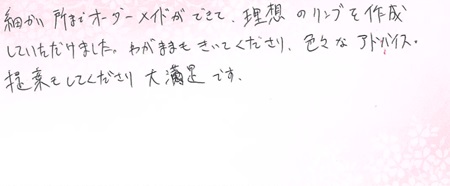 細かい所までオーダーメイドができて、理想のリングを作成
していただけました。わがままもきいてくださり、色々なアドバイス・
提案もしてくださり大満足です。